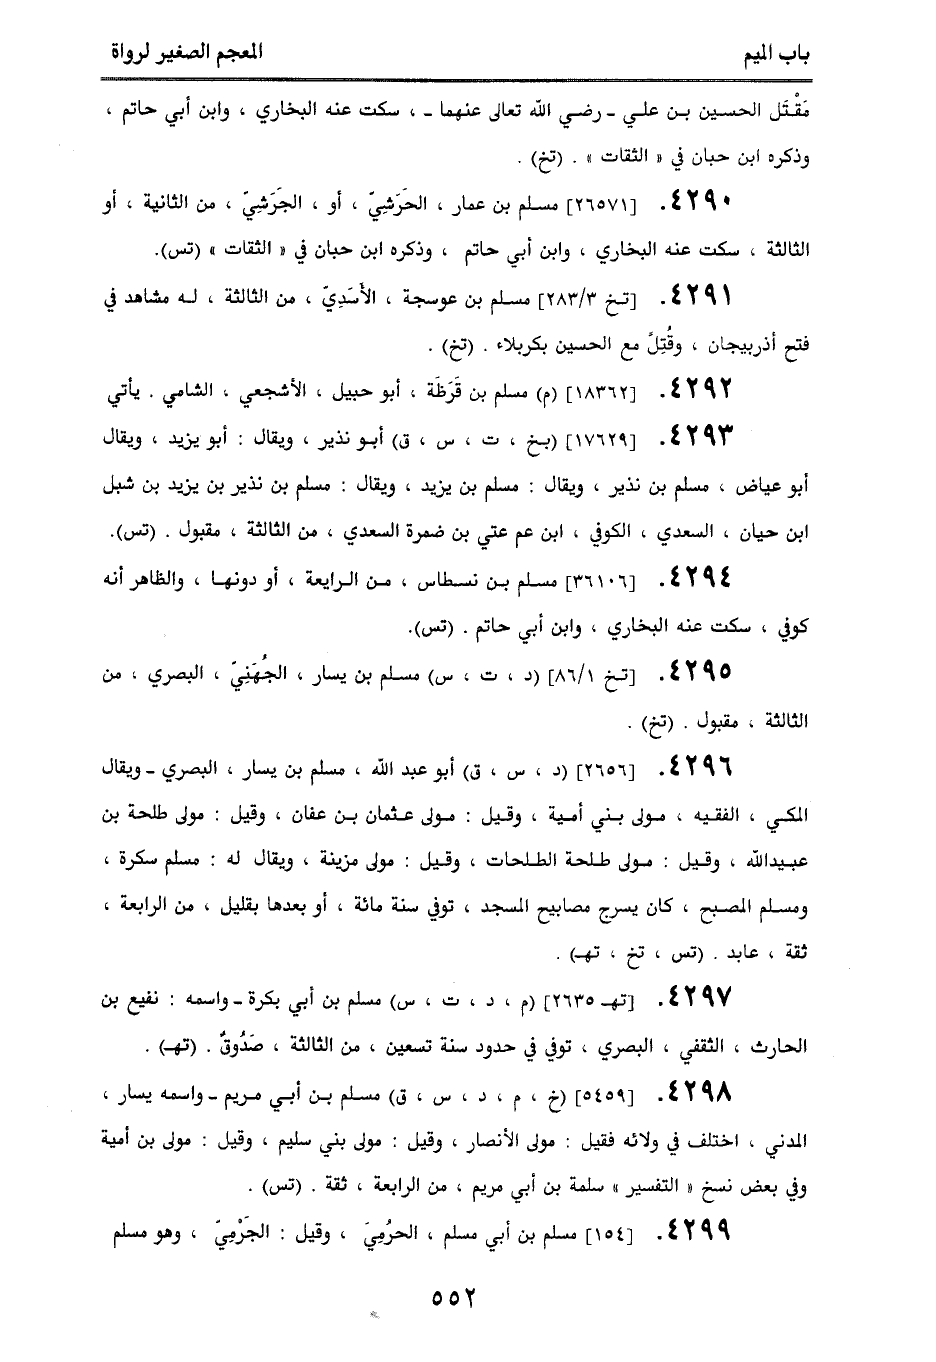 باب الميم
المعجم الصغير لرواة
مَقْتَل الحسين بن علي - رضي الله تعالى عنهما - ، سكت عنه البخاري ، وابن أبي حاتم ،
وذكره ابن حبان في « الثقات » . (تخ) .
٤٢٩٠. [٢٦٥٧١] مسلم بن عمار ، الحَرَشِيّ ، أو ، الجَرَشِيّ ، من الثانية ، أو
الثالثة ، سكت عنه البخاري ، وابن أبي حاتم ، وذكره ابن حبان في « الثقات » (تس).
٤٢٩١. [تخ ٢٨٣/٣] مسلم بن عوسجة ، الأَسَدِيّ ، من الثالثة ، له مشاهد في
فتح أذربيجان ، وقُتِلَ مع الحسين بكربلاء . (تخ) .
٤٢٩٢. [١٨٣٦٢] (م) مسلم بن قَرَظَة ، أبو حبيل ، الأشجعي ، الشامي . يأتي
٤٢٩٣. [١٧٦٢٩] (بخ ، ت ، س ، ق) أبو نذير ، ويقال : أبو يزيد ، ويقال
أبو عياض ، مسلم بن نذير ، ويقال : مسلم بن يزيد ، ويقال : مسلم بن نذير بن يزيد بن شبل
ابن حيان ، السعدي ، الكوفي ، ابن عم عتي بن ضمرة السعدي ، من الثالثة ، مقبول . (تس).
٤٢٩٤. [٣٦١٠٦] مسلم بن نسطاس ، من الرابعة ، أو دونها ، والظاهر أنه
كوفي ، سكت عنه البخاري ، وابن أبي حاتم . (تس).
٤٢٩٥. [تخ ٨٦/١] (د ، ت ، س) مسلم بن يسار ، الجُهَنِيّ ، البصري ، من
الثالثة ، مقبول . (تخ) .
٤٢٩٦. [٢٦٥٦] (د ، س ، ق) أبو عبد الله ، مسلم بن يسار ، البصري - ويقال
المكي ، الفقيه ، مولى بني أمية ، وقيل : مولى عثمان بن عفان ، وقيل : مولى طلحة بن
عبيدالله ، وقيل : مولى طلحة الطلحات ، وقيل : مولى مزينة ، ويقال له : مسلم سكرة ،
ومسلم المصبح ، كان يسرج مصابيح المسجد ، توفي سنة مائة ، أو بعدها بقليل ، من الرابعة ،
ثقة ، عابد . (تس ، تخ ، تهـ) .
٤٢٩٧. [تهـ ٢٦٣٥] (م ، د ، ت ، س) مسلم بن أبي بكرة - واسمه : نفيع بن
الحارث ، الثقفي ، البصري ، توفي في حدود سنة تسعين ، من الثالثة ، صَدُوقٌ . (تهـ) .
٤٢٩٨. [٥٤٥٩] (خ ، م ، د ، س ، ق) مسلم بن أبي مريم - واسمه يسار ،
المدني ، اختلف في ولائه فقيل : مولى الأنصار ، وقيل : مولى بني سليم ، وقيل : مولى بن أمية
وفي بعض نسخ « التفسير » سلمة بن أبي مريم ، من الرابعة ، ثقة . (تس) .
٤٢٩٩. [١٥٤] مسلم بن أبي مسلم ، الحرُمِيّ ، وقيل : الجَرْمِيّ ، وهو مسلم
٥٥٢